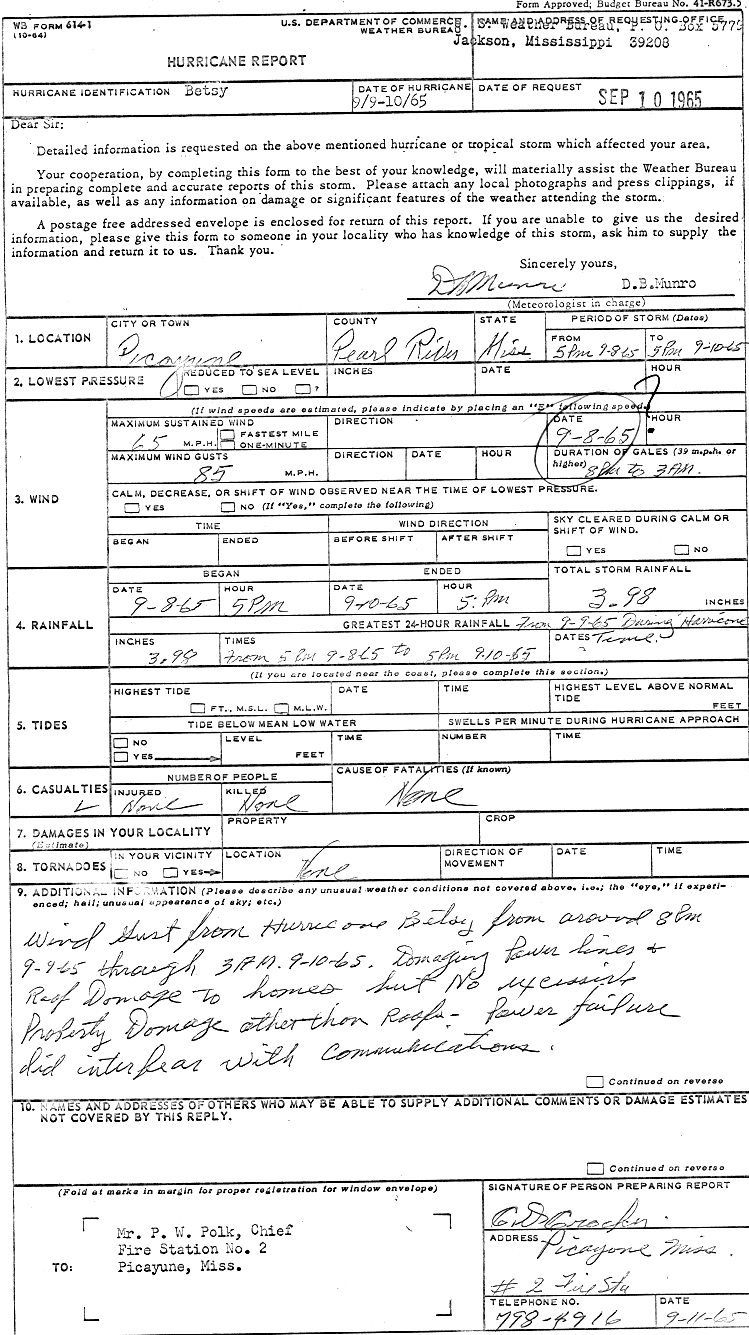 Form Approved; Budget Bureau No. 41-R673.5
WB FORM 614-1
(10-64)
U.S. DEPARTMENT OF COMMERCE
WEATHER BUREAU
NAME AND ADDRESS OF REQUESTING OFFICE
U. S. Weather Bureau, P. O. Box 5779
Jackson, Mississippi 39208
HURRICANE REPORT
HURRICANE IDENTIFICATION Betsy
DATE OF HURRICANE
9/9-10/65
DATE OF REQUEST
SEP 10 1965
Dear Sir:
Detailed information is requested on the above mentioned hurricane or tropical storm which affected your area.
Your cooperation, by completing this form to the best of your knowledge, will materially assist the Weather Bureau
in preparing complete and accurate reports of this storm. Please attach any local photographs and press clippings, if
available, as well as any information on damage or significant features of the weather attending the storm.
A postage free addressed envelope is enclosed for return of this report. If you are unable to give us the desired
information, please give this form to someone in your locality who has knowledge of this storm, ask him to supply the
information and return it to us. Thank you.
Sincerely yours,
DBMunro D.B.Munro
(Meteorologist in charge)
1. LOCATION
CITY OR TOWN
Picayune
COUNTY
Pearl River
STATE
Miss
PERIOD OF STORM (Dates)
FROM
5 PM 9-8-65
TO
5 PM 9-10-65
2. LOWEST PRESSURE
REDUCED TO SEA LEVEL
YES NO ?
INCHES
DATE
HOUR
?
(If wind speeds are estimated, please indicate by placing an "E" following speed.)
3. WIND
MAXIMUM SUSTAINED WIND
65 M.P.H.
FASTEST MILE
ONE-MINUTE
DIRECTION
DATE
9-8-65
HOUR
MAXIMUM WIND GUSTS
85 M.P.H.
DIRECTION DATE HOUR
DURATION OF GALES (39 m.p.h. or
higher) 8PM to 3AM.
CALM, DECREASE, OR SHIFT OF WIND OBSERVED NEAR THE TIME OF LOWEST PRESSURE.
YES NO (If "Yes," complete the following)
TIME
BEGAN ENDED
WIND DIRECTION
BEFORE SHIFT AFTER SHIFT
SKY CLEARED DURING CALM OR
SHIFT OF WIND.
YES NO
4. RAINFALL
BEGAN
DATE
9-8-65
HOUR
5 PM
ENDED
DATE
9-10-65
HOUR
5: PM
TOTAL STORM RAINFALL
3.98 INCHES
GREATEST 24-HOUR RAINFALL From 9-9-65 During Hurricane
INCHES
3.98
TIMES
From 5 PM 9-8-65 to 5 PM 9-10-65
DATES Time.
(If you are located near the coast, please complete this section.)
5. TIDES
HIGHEST TIDE
FT., M.S.L. M.L.W.
DATE
TIME
HIGHEST LEVEL ABOVE NORMAL
TIDE
FEET
TIDE BELOW MEAN LOW WATER
NO
YES
LEVEL
FEET
TIME
SWELLS PER MINUTE DURING HURRICANE APPROACH
NUMBER
TIME
6. CASUALTIES
NUMBER OF PEOPLE
INJURED
None
KILLED
None
CAUSE OF FATALITIES (If known)
None
7. DAMAGES IN YOUR LOCALITY
(Estimate)
PROPERTY
CROP
8. TORNADOES
IN YOUR VICINITY
NO YES
LOCATION
None
DIRECTION OF
MOVEMENT
DATE
TIME
9. ADDITIONAL INFORMATION (Please describe any unusual weather conditions not covered above, i.e.; the "eye," if experi-
enced; hail; unusual appearance of sky; etc.)
Wind Gust from Hurricane Betsy from around 8 PM
9-9-65 through 3 A.M. 9-10-65. Damaging Power lines &
Roof Damage to homes but No excessive
Property Damage other than Roofs- Power failure
did interfear with Communications.
Continued on reverse
10. NAMES AND ADDRESSES OF OTHERS WHO MAY BE ABLE TO SUPPLY ADDITIONAL COMMENTS OR DAMAGE ESTIMATES
NOT COVERED BY THIS REPLY.
Continued on reverse
(Fold at marks in margin for proper registration for window envelope)
TO:
Mr. P. W. Polk, Chief
Fire Station No. 2
Picayune, Miss.
SIGNATURE OF PERSON PREPARING REPORT
ADDRESS
Picayune Miss.
# 2 Fire Sta
TELEPHONE NO.
798-4916
DATE
9-11-65